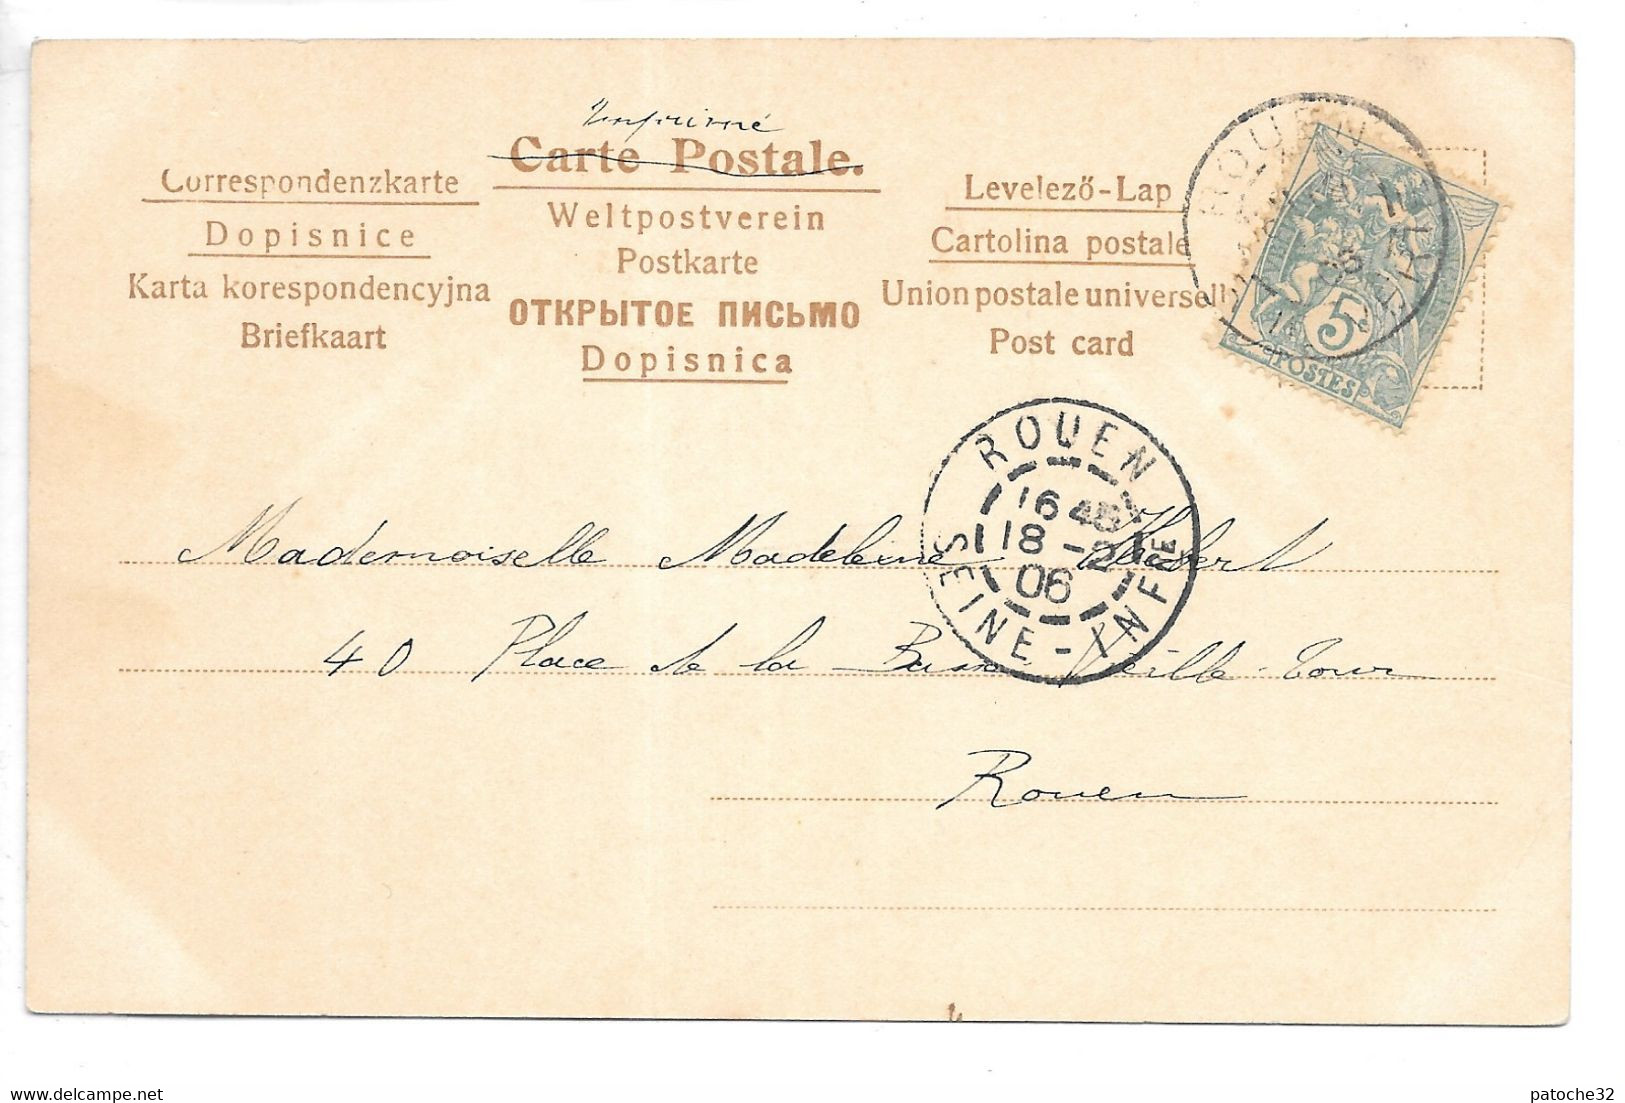 Imprimé
Carte Postale.
Correspondenzkarte
Dopisnice
Karta korespondencyjna
Briefkaart
Weltpostverein
Postkarte
ОТКРЫТОЕ ПИСЬМО
Dopisnica
Levelező-Lap
Cartolina postale
Union postale universell
Post card
ROUEN
5
POSTES
ROUEN
16 45
18 - 2
06
SEINE - INFRE
Mademoiselle Madeleine Hubert
40 Place de la Basse Vieille Tour
Rouen
patoche32